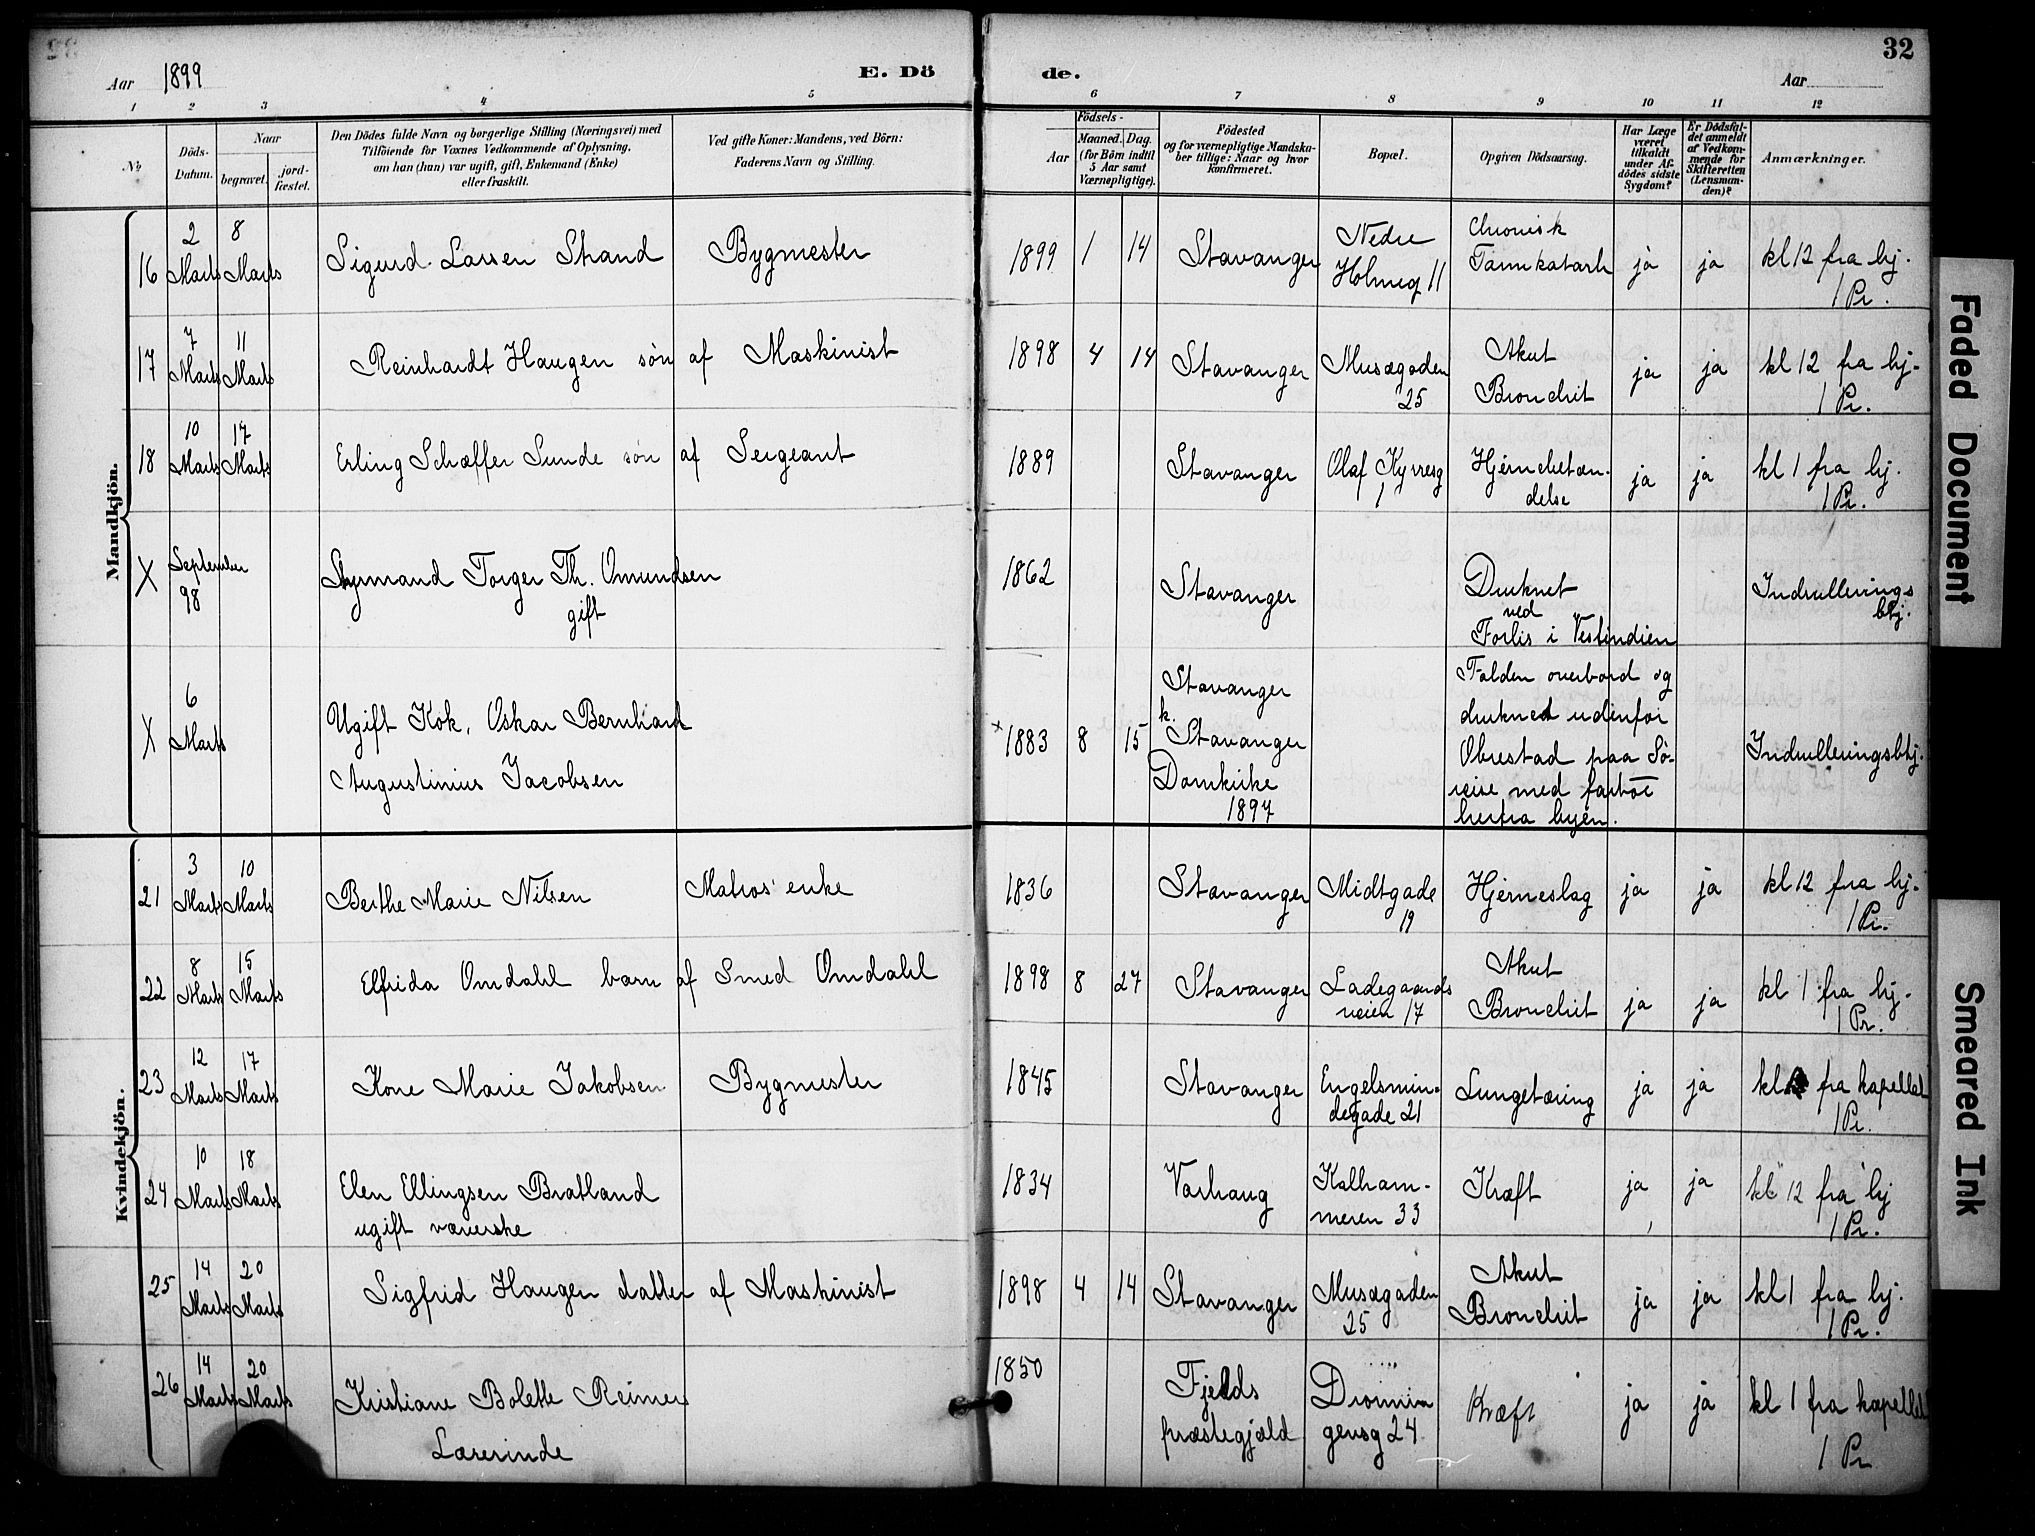 32
Aar 1899
E. Dö
de.
Aar
1 2 3 4 5 6 7 8 9 10 11 12
No
Döds-
Datum.
Naar
begravet.
jord-
fæstet.
Den Dödes fulde Navn og borgerlige Stilling (Næringsvei) med
Tilföiende for Voxnes Vedkommende af Oplysning,
om han (hun) var ugift, gift, Enkemand (Enke)
eller fraskilt.
Ved gifte Koner: Mandens, ved Börn:
Faderens Navn og Stilling.
Födsels-
Aar
Maaned.
Dag.
(for Börn indtil
5 Aar samt
Værnepligtige).
Födested
og for værnepligtige Mandska-
ber tillige: Naar og hvor
konfirmeret.
Bopæl.
Opgiven Dödsaarsag.
Har Læge
været
tilkaldt
under Af-
dödes sidste
Sygdom?
Er Dödsfal-
det anmeldt
af Vedkom-
mende for
Skifteretten
(Lensman-
den)?
Anmærkninger.
Mandkjön.
16 2 Marts 8 Marts Sigurd Larsen Strand Bygmester 1899 1 14 Stavanger Nedre Holmeg 11 Chronisk Tarmkatarh ja ja kl 12 fra hj. 1 Pr.
17 7 Marts 11 Marts Reinhardt Haugen søn af Maskinist 1898 4 14 Stavanger Musægaden 25 Akut Bronchit ja ja kl 12 fra hj. 1 Pr.
18 10 Marts 17 Marts Erling Schæffer Sunde søn af Sergeant 1889 Stavanger Olaf Kyrresg 1 Hjernebetændelse ja ja kl 1 fra hj. 1 Pr.
X September 98 Styrmand Torger Th. Omundsen gift 1862 Stavanger Druknet ved Forlis i Vestindien Indrullerings btj.
X 6 Marts Ugift Kok, Oskar Bernhard Augustinius Jacobsen x 1883 8 15 Stavanger k. Stavanger Domkirke 1897 Falden overbord og druknet udenfor Obrestad paa Søreise med fartøi herfra byen. Indrulleringsbtj.
Kvindekjön.
21 3 Marts 10 Marts Berthe Marie Nilsen Matros' enke 1836 Stavanger Midtgade 19 Hjerneslag ja ja kl 12 fra hj. 1 Pr.
22 8 Marts 15 Marts Elfrida Omdahl barn af Smed Omdahl 1898 8 27 Stavanger Ladegaardsveien 17 Akut Bronchit ja ja kl 1 fra hj. 1 Pr.
23 12 Marts 17 Marts Kone Marie Jakobsen Bygmester 1845 Stavanger Engelsmindegade 21 Lungetæring ja ja kl fra kapellet 1 Pr.
24 10 Marts 18 Marts Elen Ellingsen Bratland ugift væverske 1834 Varhaug Kalhammeren 33 Kræft ja ja kl 12 fra hj 1 Pr.
25 14 Marts 20 Marts Sigfrid Haugen datter af Maskinist 1898 4 14 Stavanger Musægaden 25 Akut Bronchit ja ja kl 1 fra hj. 1 Pr.
26 14 Marts 20 Marts Kristiane Bolette Reimers Lærerinde 1850 Fjelds præstegjæld Dronningensg 24 Kræft ja ja kl 1 fra kapellet 1 Pr
Faded Document
Smeared Ink